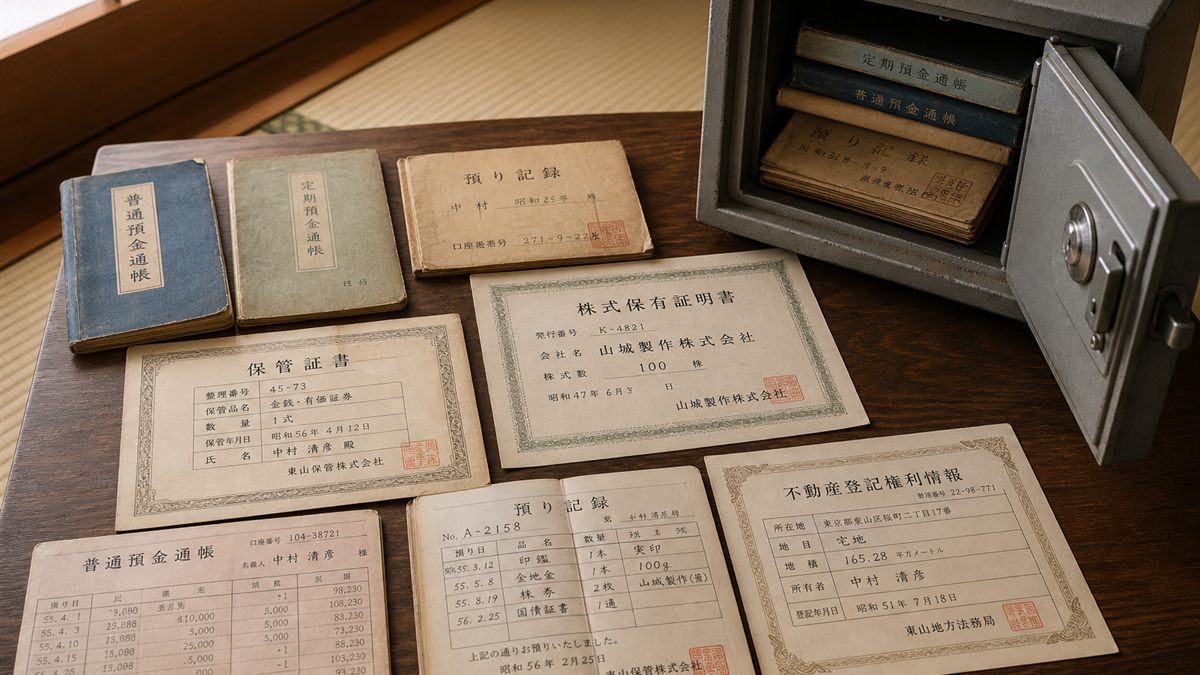 普通預金通帳
定期預金通帳
預り記録
中村 昭和
口座番号 271-9-22
定期預金通帳
普通預金通帳
預り記録
保管証書
整理番号 45-73
保管品名 金銭・有価証券
数量 1式
保管年月日 昭和56年4月12日
氏名 中村清彦 殿
東山保管株式会社
株式保有証明書
発行番号 K-4821
会社名 山城製作株式会社
株式数 100 株
昭和47年6月 日
山城製作株式会社
普通預金通帳
口座番号 104-38721
名義人 中村清彦 様
98,230
55.4.1 5,000 108,230
55.4.3 5,000 5,000 83,230
55.4.10 25,000 5,000 73,230
55.4.15 5,000 88,230
5,000 103,230
預り記録
No. A-2158
預り日 品名 数量
55.3.12 印鑑 1本 実印
55.5.8 金地金 1本 100g
55.8.19 株券 2枚 山城製作
56.2.25 国債証書 1通
上記の通りお預りいたしました。
昭和56年2月25日
東山保管株式会社
不動産登記権利情報
管理番号 22-98-771
所在地 東京都東山区桜町二丁目17番
地目 宅地
地積 165.28 平方メートル
所有者 中村清彦
登記年月日 昭和51年7月18日
東山地方法務局